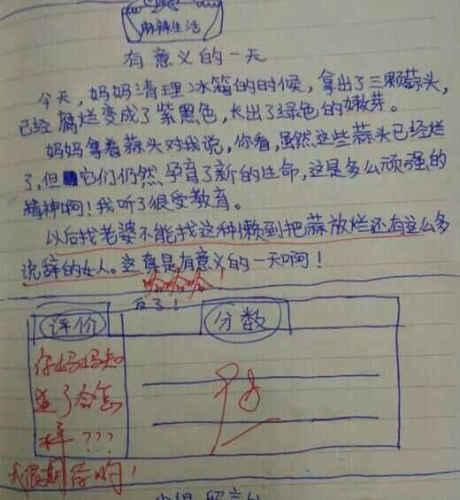 麻辣生活
有意义的一天
今天,妈妈清理冰箱的的时候,拿出了三颗蒜头,
已经腐烂变成了紫黑色,长出了绿色的嫩芽。
妈妈拿着蒜头对我说,你看,虽然这些蒜头已经烂
了,但它们仍然孕育了新的生命,这是多么顽强的
精神啊!我听了很受教育。
以后找老婆不能找这种懒到把蒜放烂还有这么多
说辞的女人。这真是有意义的一天啊!
哈哈哈
反了!
评价
分数
你妈妈知
道了会怎
样???